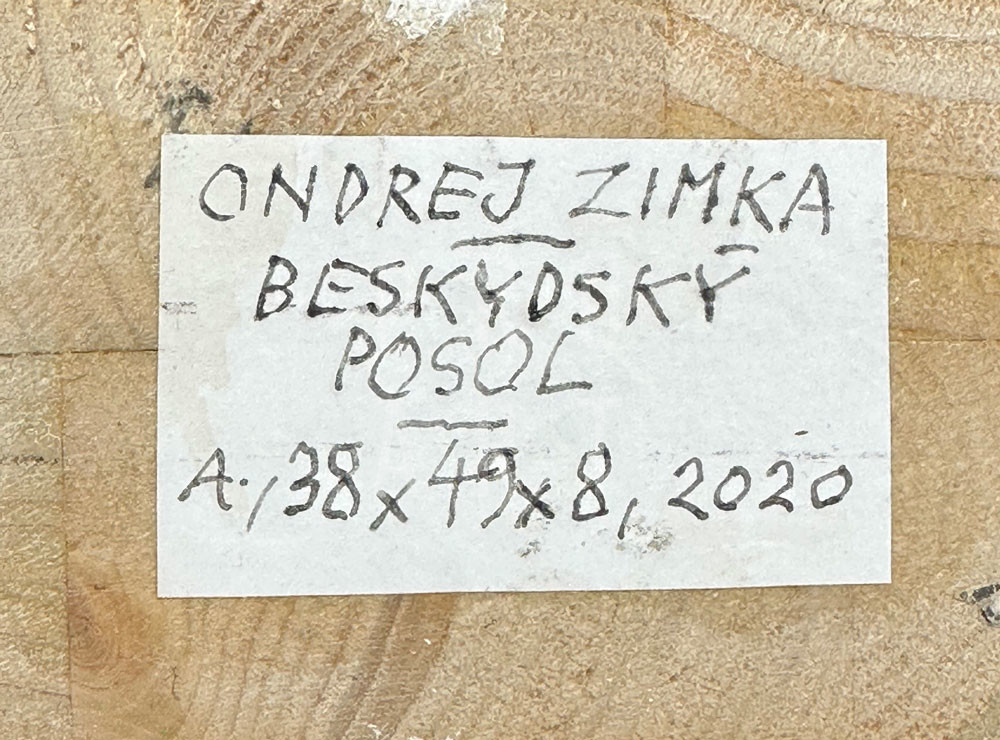 ONDREJ ZIMKA
BESKYDSKÝ
POSOL
A., 38 x 49 x 8, 2020